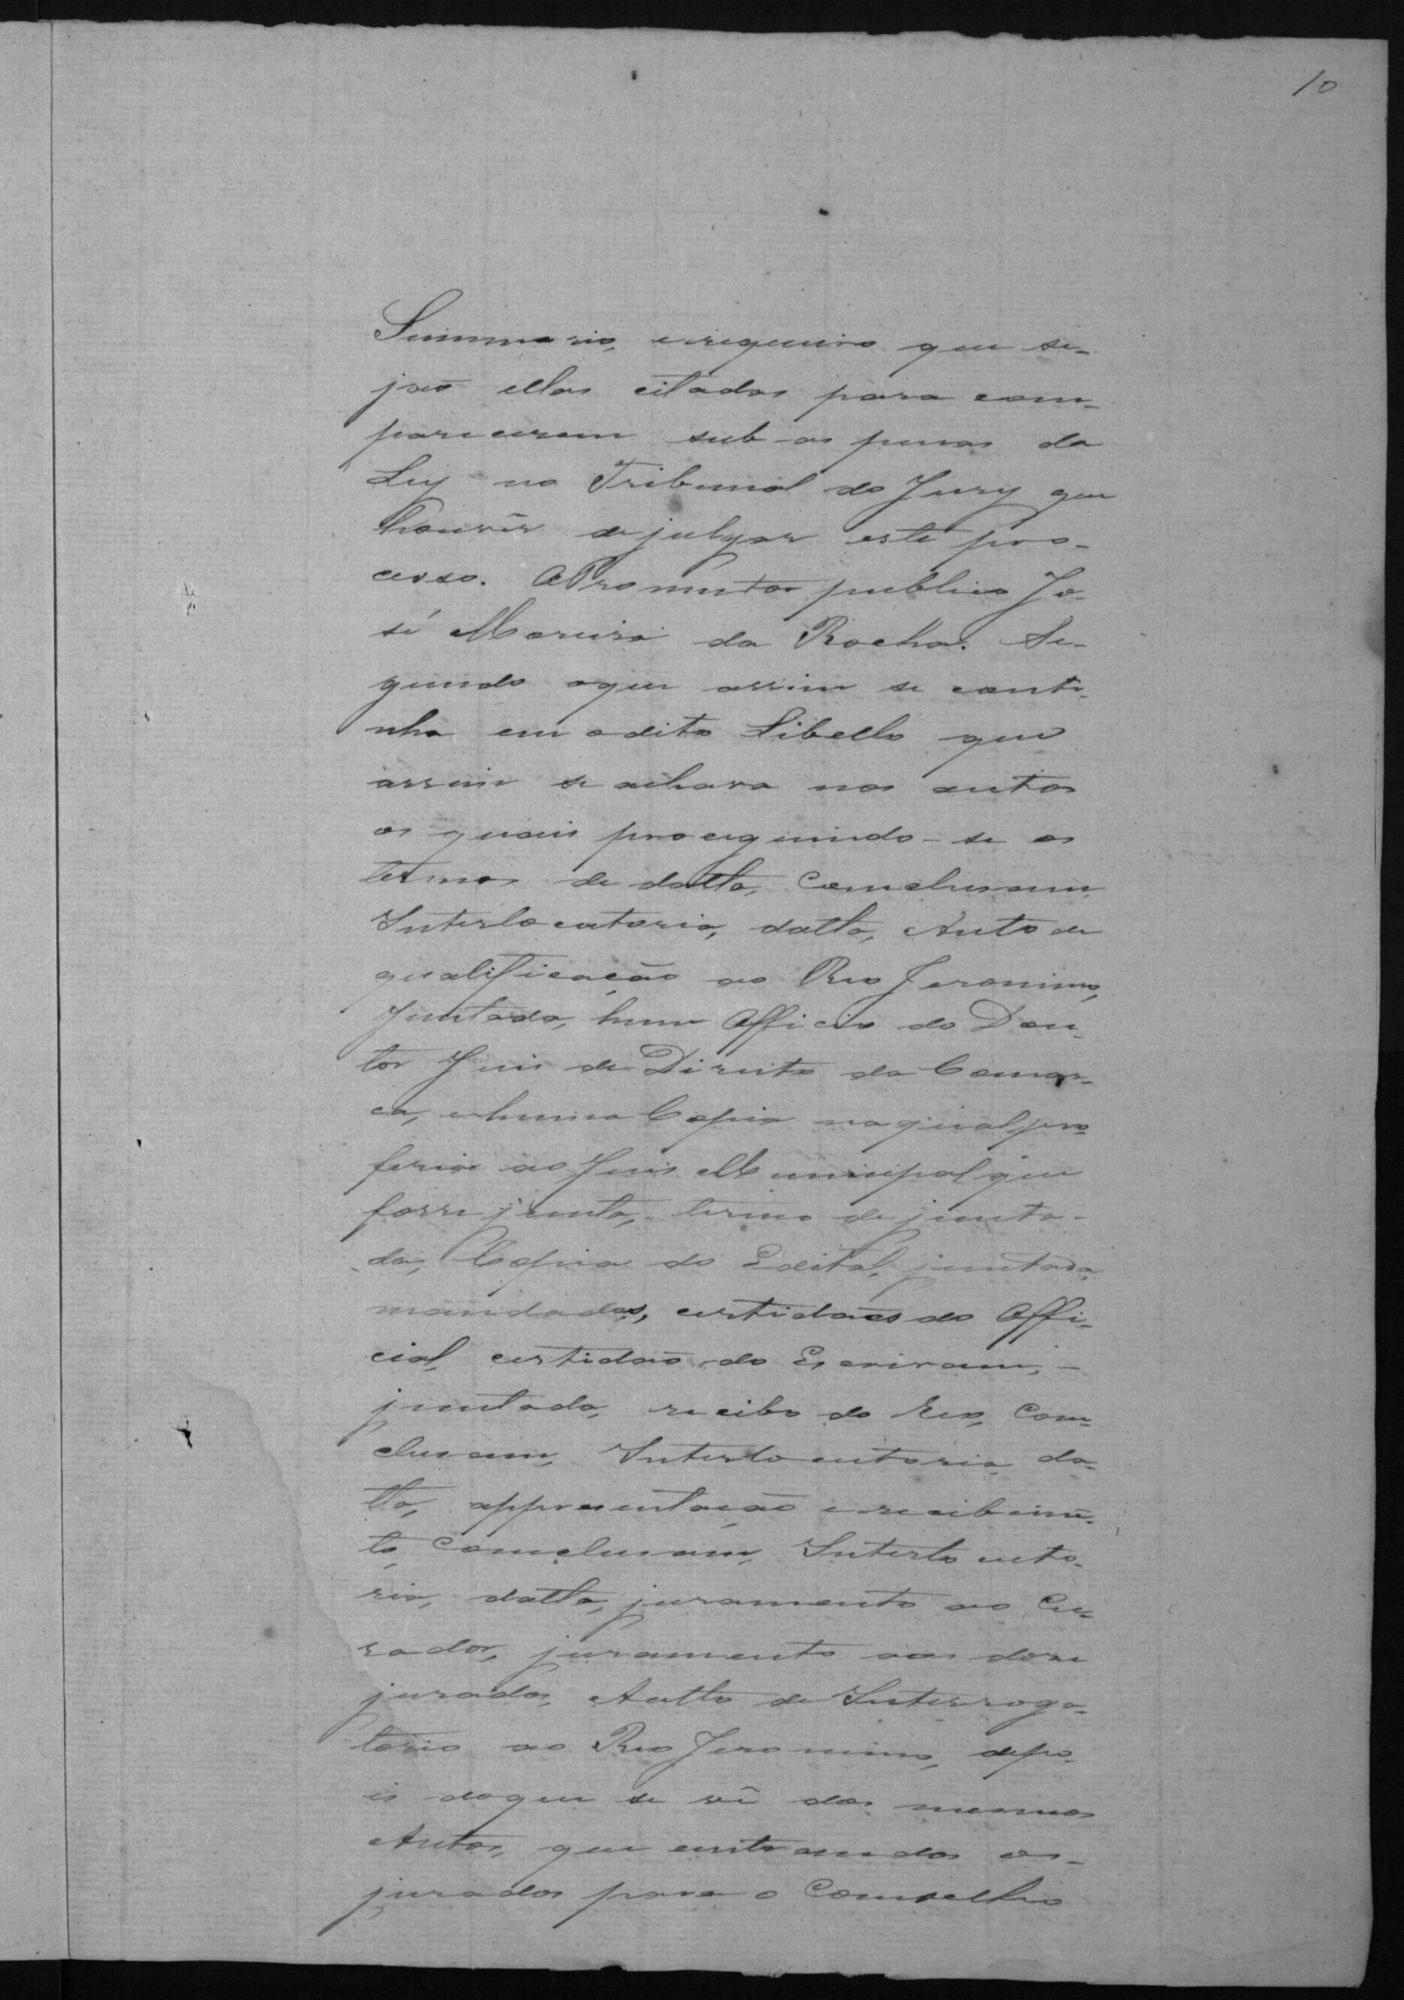 10
Summario, e requeiro que se-
jaõ ellas citadas para com-
parecerem sub-as penas da
Ley no Tribunal do Jury que
houvér de julgar este pro-
cesso. O Promutor publico Jo-
sé Moreira da Rocha. Se-
gundo oque assim se conti-
nha em o dito Libello que
assim se achava nos autos
os quais proceguindo-se os
termos de datta, Concluzam,
Interlocutoria, datta, Auto de
qualificação ao Reo Jeronimo,
Juntada, hum Officio do Dou-
tor Juis de Direito da Comar-
ca, e huma Copia na qual pro-
feria ao Juis Municipal que
fosse junta, termo de junta-
da, Copia do Edital, juntada,
mandados, certidaõs do Offi-
cial, certidaõ do Escrivam,-
juntada, recibo do Reo, Com-
cluzam, Interlocutoria, da-
tta, appresentação e recibimẽ-
to, Comcluzam, Interlocuto-
ria, datta, juramento ao Cu-
rador, juramento aos doze
jurados, Autto de Interroga-
torio ao Reo Jeronimo, depo-
is doque se vê dos mesmos
Autos, que entrando os-
jurados para o Comselho